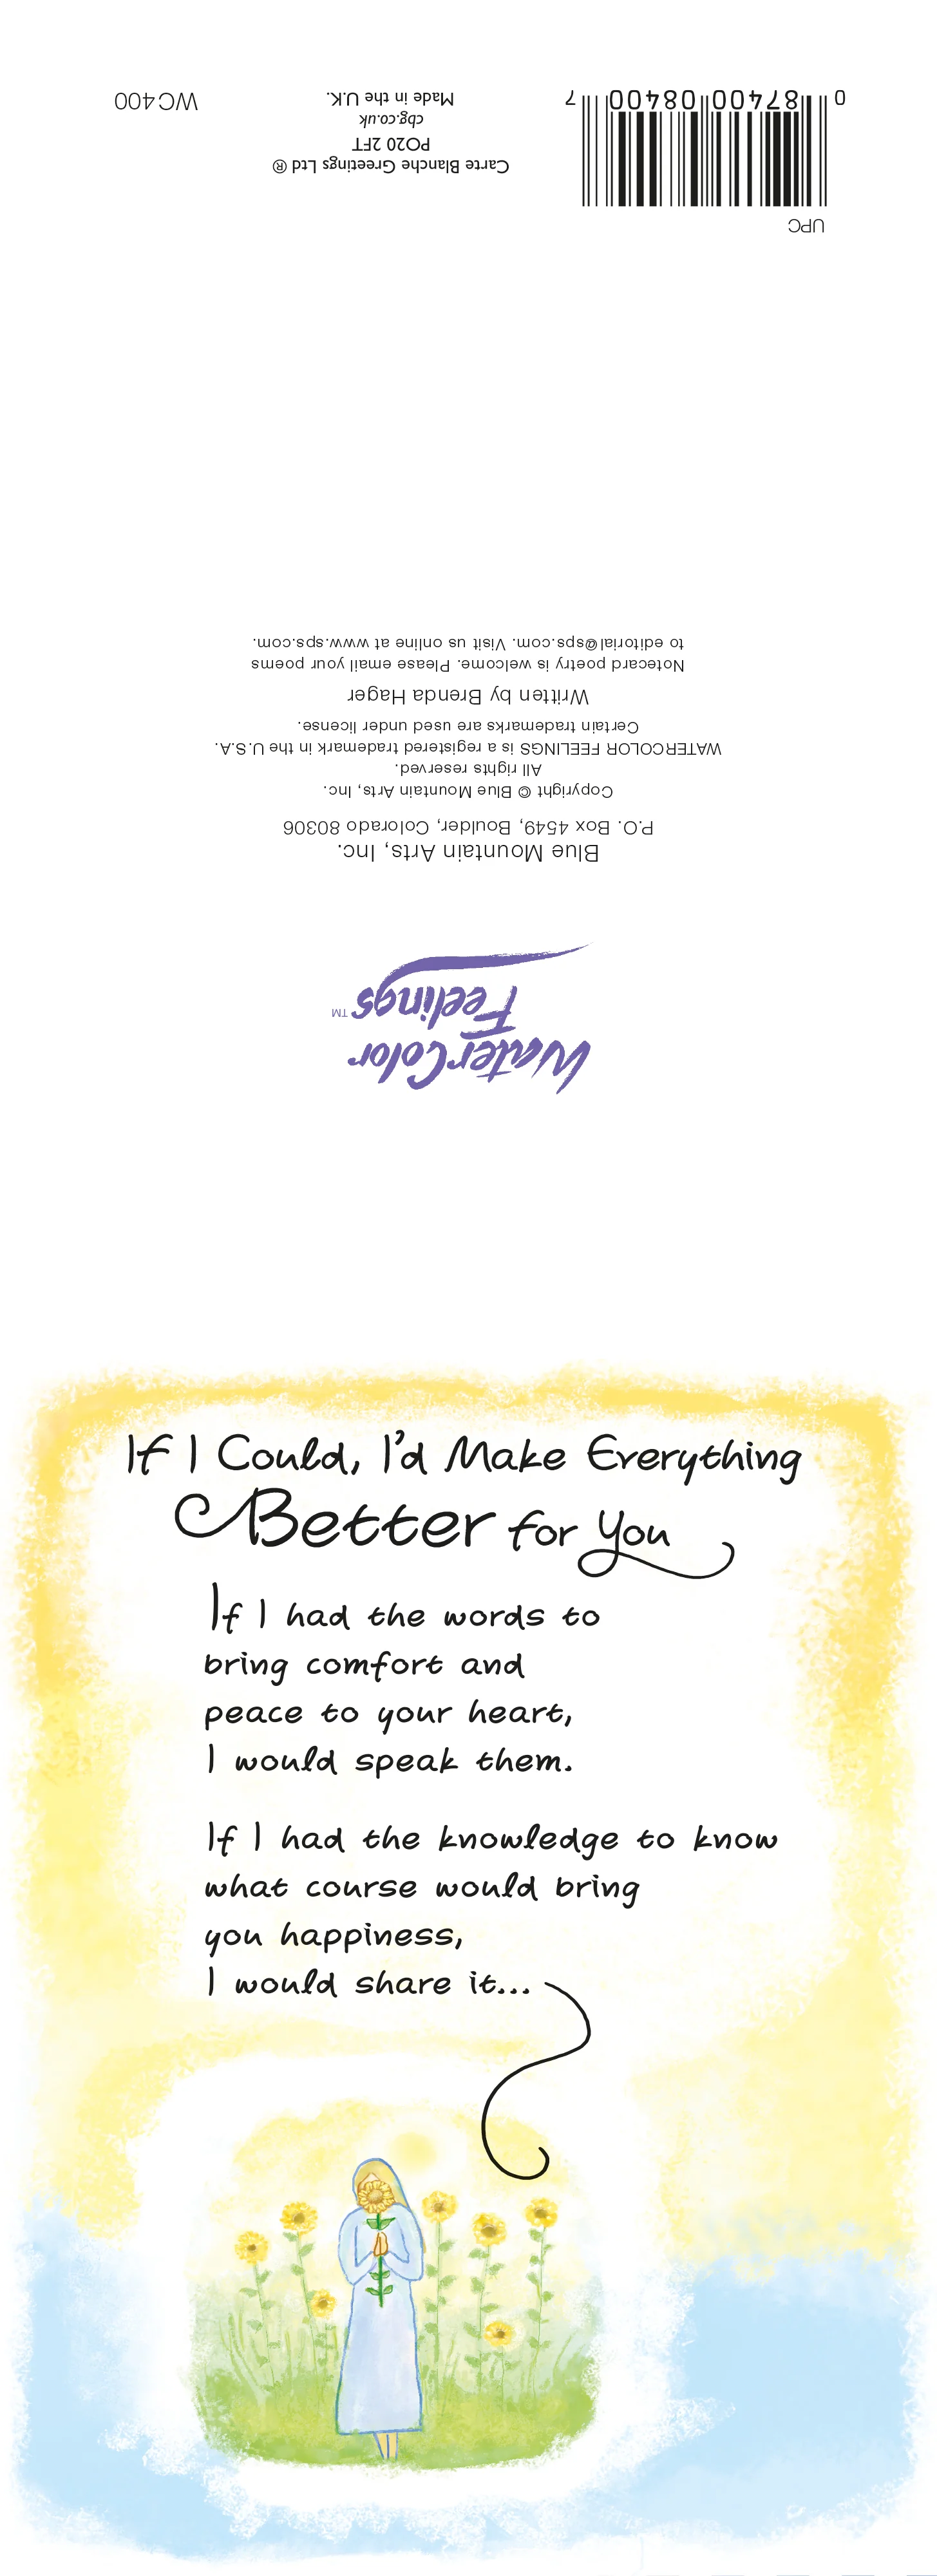 If I Could, I'd Make Everything
Better for You
If I had the words to
bring comfort and
peace to your heart,
I would speak them.
If I had the knowledge to know
what course would bring
you happiness,
I would share it...
WaterColor
Feelings™
Blue Mountain Arts, Inc.
P.O. Box 4549, Boulder, Colorado 80306
Copyright © Blue Mountain Arts, Inc.
All rights reserved.
WATERCOLOR FEELINGS is a registered trademark in the U.S.A.
Certain trademarks are used under license.
Written by Brenda Hager
Notecard poetry is welcome. Please email your poems
to editorial@sps.com. Visit us online at www.sps.com.
UPC
0 87400 08400 7
Carte Blanche Greetings Ltd ®
PO20 2FT
cbg.co.uk
Made in the U.K.
WC400